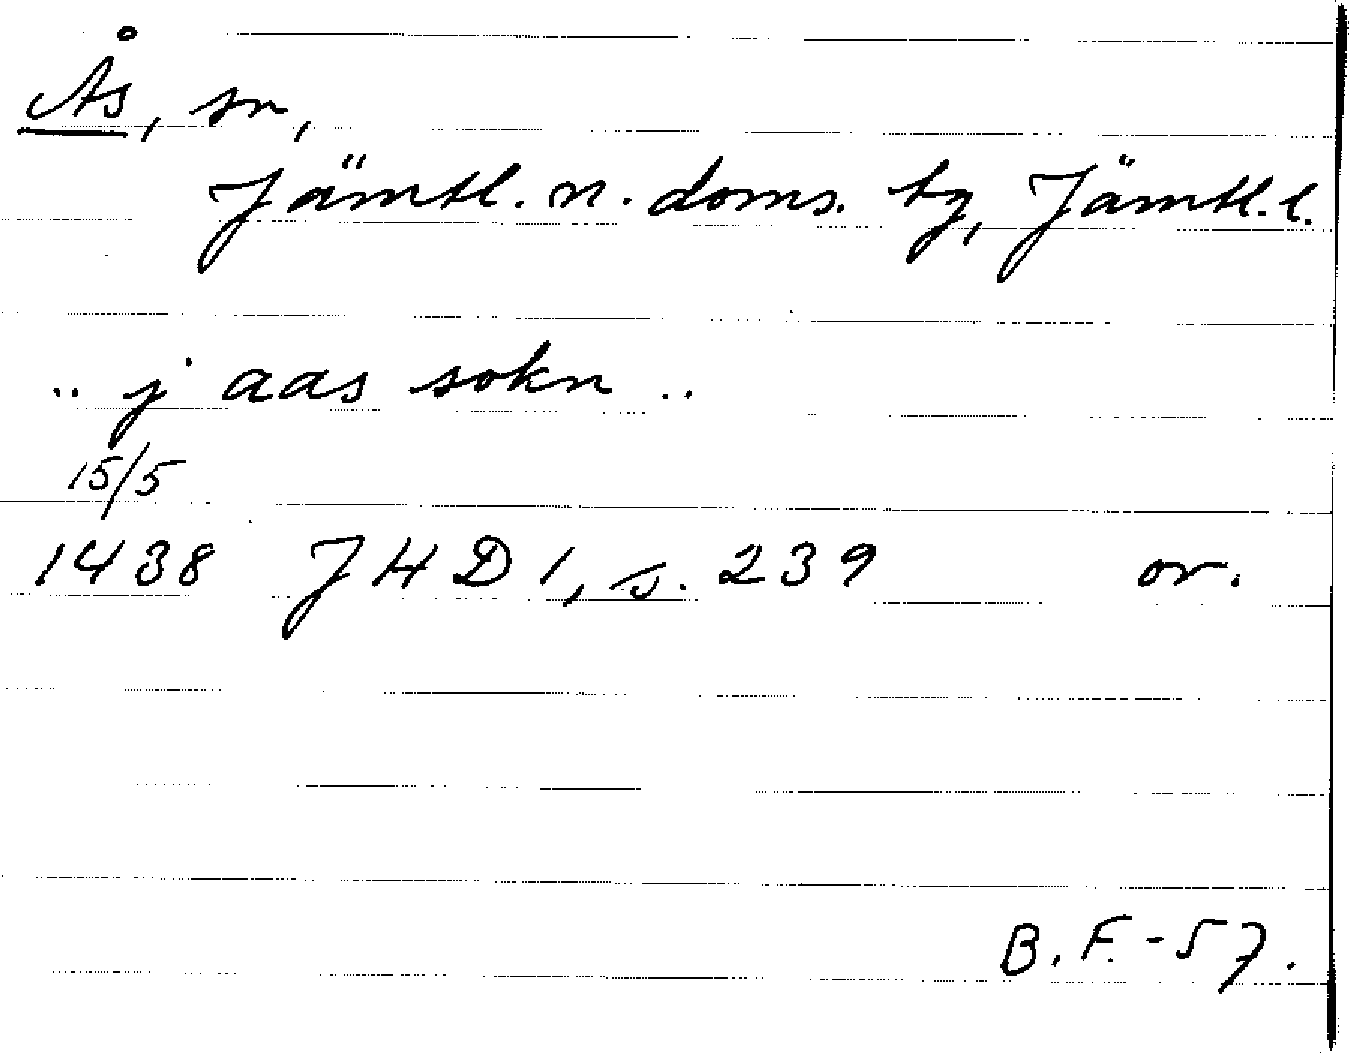 Ås, sn,
Jämtl. n. doms. tg, Jämtl. l.
.. j aas sokn ..
15/5
1438 JHD 1, s. 239 or.
B. F. - 57.